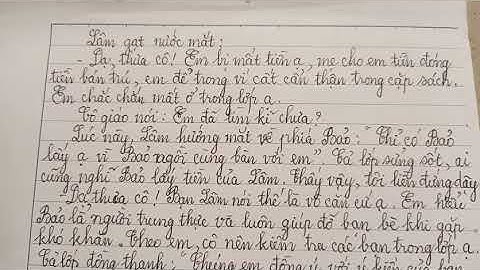 Lâm gạt nước mắt:
- Dạ, thưa cô! Em bị mất tiền ạ, mẹ cho em tiền đóng
tiền bán trú, em để trong ví cất cẩn thận trong cặp sách.
Em chắc chắn mất ở trong lớp ạ.
Cô giáo nói: Em đã tìm kĩ chưa?
Lúc này, Lâm hướng mắt về phía Bảo: "Chỉ có Bảo
lấy ạ vì Bảo ngồi cùng bàn với em". Cả lớp sửng sốt, ai
cũng nghĩ Bảo lấy tiền của Lâm. Thấy vậy, tôi liền đứng dậy
- Dạ thưa cô! Bạn Lâm nói thế là vô căn cứ ạ. Em hiểu
Bảo là người trung thực và luôn giúp đỡ bạn bè khi gặp
khó khăn. Theo em, cô nên kiểm tra các bạn trong lớp ạ.
Cả lớp đồng thanh: Chúng em đồng ý với ý kiến của bạn